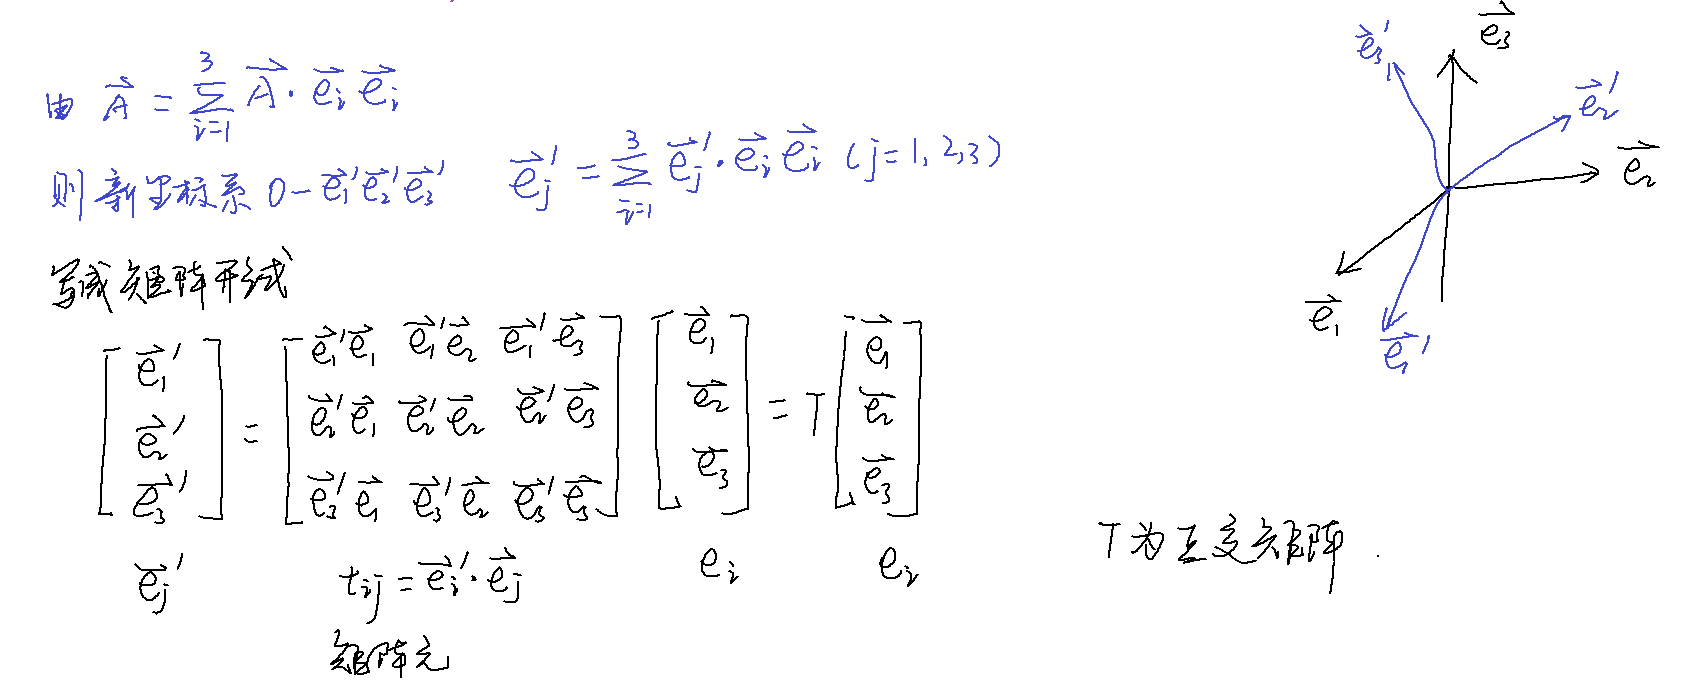 由 $\vec{A} = \sum_{i=1}^{3} \vec{A} \cdot \vec{e}_i \vec{e}_i$
则新坐标系 $0-\vec{e}_1'\vec{e}_2'\vec{e}_3'$ $\vec{e}_j' = \sum_{i=1}^{3} \vec{e}_j' \cdot \vec{e}_i \vec{e}_i$ (j=1,2,3)
写成矩阵形式
$\begin{bmatrix} \vec{e}_1' \\ \vec{e}_2' \\ \vec{e}_3' \end{bmatrix} = \begin{bmatrix} \vec{e}_1'\vec{e}_1 & \vec{e}_1'\vec{e}_2 & \vec{e}_1'\vec{e}_3 \\ \vec{e}_2'\vec{e}_1 & \vec{e}_2'\vec{e}_2 & \vec{e}_2'\vec{e}_3 \\ \vec{e}_3'\vec{e}_1 & \vec{e}_3'\vec{e}_2 & \vec{e}_3'\vec{e}_3 \end{bmatrix} \begin{bmatrix} \vec{e}_1 \\ \vec{e}_2 \\ \vec{e}_3 \end{bmatrix} = T \begin{bmatrix} \vec{e}_1 \\ \vec{e}_2 \\ \vec{e}_3 \end{bmatrix}$
$\vec{e}_j'$ $t_{ij} = \vec{e}_i' \cdot \vec{e}_j$ $e_i$ $e_i$
矩阵元
$\vec{e}_3$
$\vec{e}_3'$
$\vec{e}_2'$
$\vec{e}_2$
$\vec{e}_1$
$\vec{e}_1'$
T为正交矩阵.